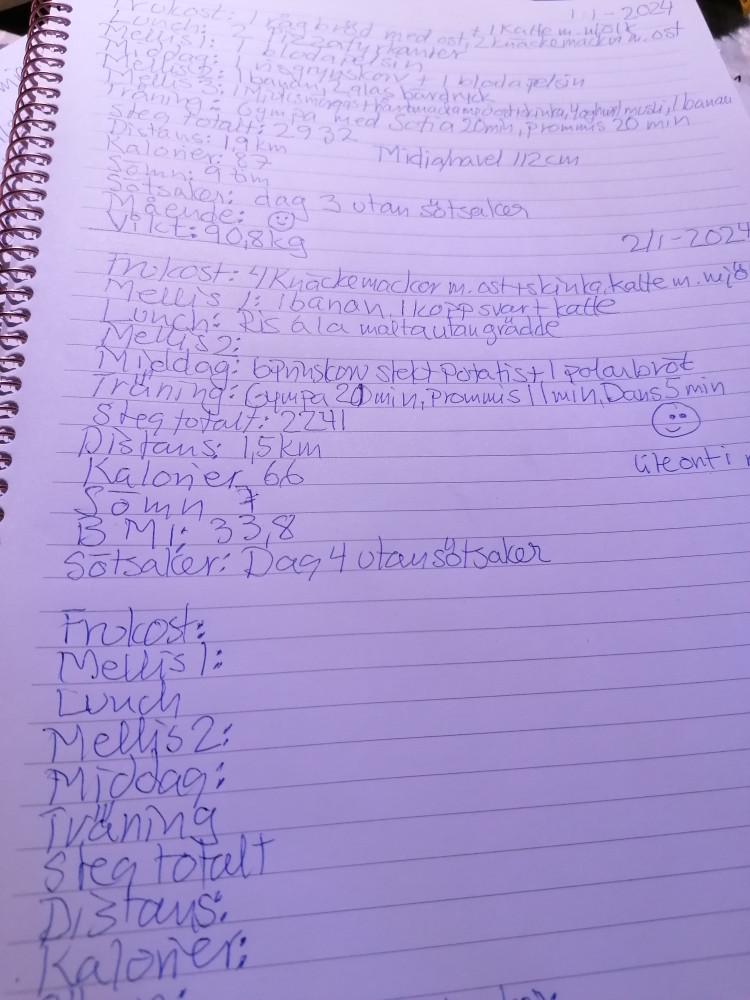 1/1-2024
Frukost: 1 rågbröd med ost, + 1 Kaffe m. mjölk
Lunch: 2 pizzatykanter 2 knäckemackor m. ost
Mellis1: 1 blodapelsin
Middag: 1 + 1 blodapelsin
Mellis2: 1 banan, 2 glas bärdrick
Mellis 3: skinka, yoghurt musli, 1 banan
Träning: Gympa med Sofia 20min, prommis 20 min
Steg totalt: 2932
Distans: 1,9 km
Kalorier: 87 Midjghavel 112cm
Sömn: 9 tim
Sötsaker: dag 3 utan sötsaker
Mående:
Vikt: 90,8kg
2/1-2024
Frukost: 4 Knäckemackor m. ost+skinka, kaffe m. mjö
Mellis 1: 1 banan, 1 kopp svart kaffe
Lunch: Ris á la malta utan grädde
Mellis2:
Middag: stekt potatis + 1 polarbröt
Träning: Gympa 20min, Prommis 11 min, Dans 5 min
Steg totalt: 2241
Distans: 1,5km
Kalorier 66 lite ont i
Sömn 7
BMI: 33,8
Sötsaker: Dag 4 utan sötsaker
Frukost:
Mellis1:
Lunch
Mellis2:
Middag:
Träning
Steg totalt
Distans:
Kalorier: